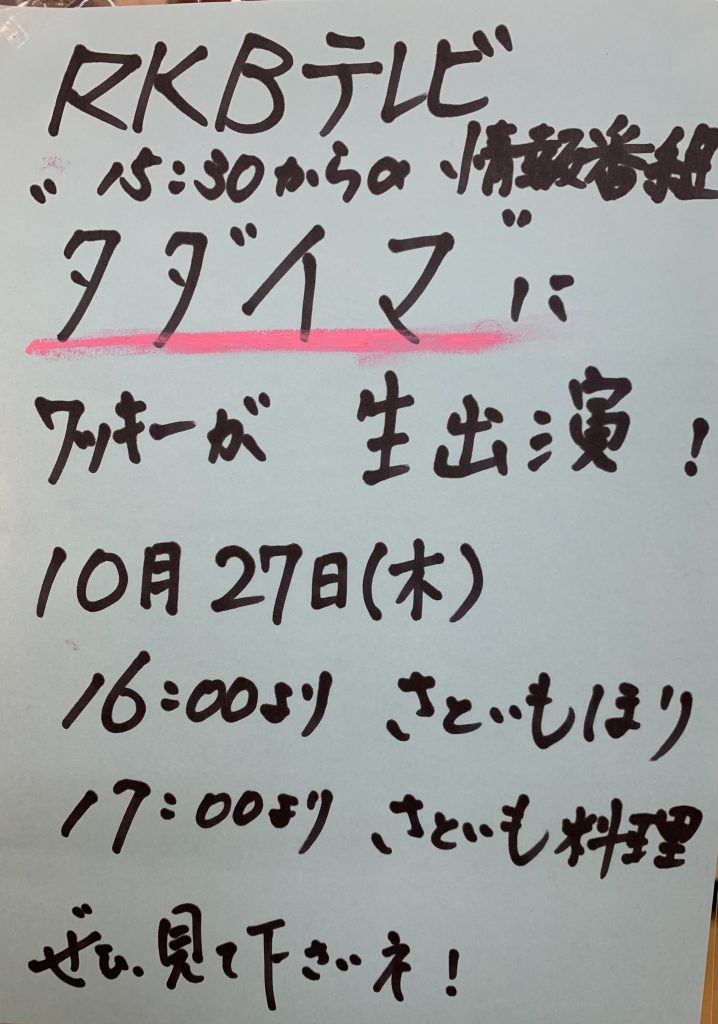 RKBテレビ
〃 15:30からの 情報番組
タダイマ〃に
ワッキーが 生出演!
10月27日(木)
16:00より さといもほり
17:00より さといも料理
ぜひ、見て下さいネ!